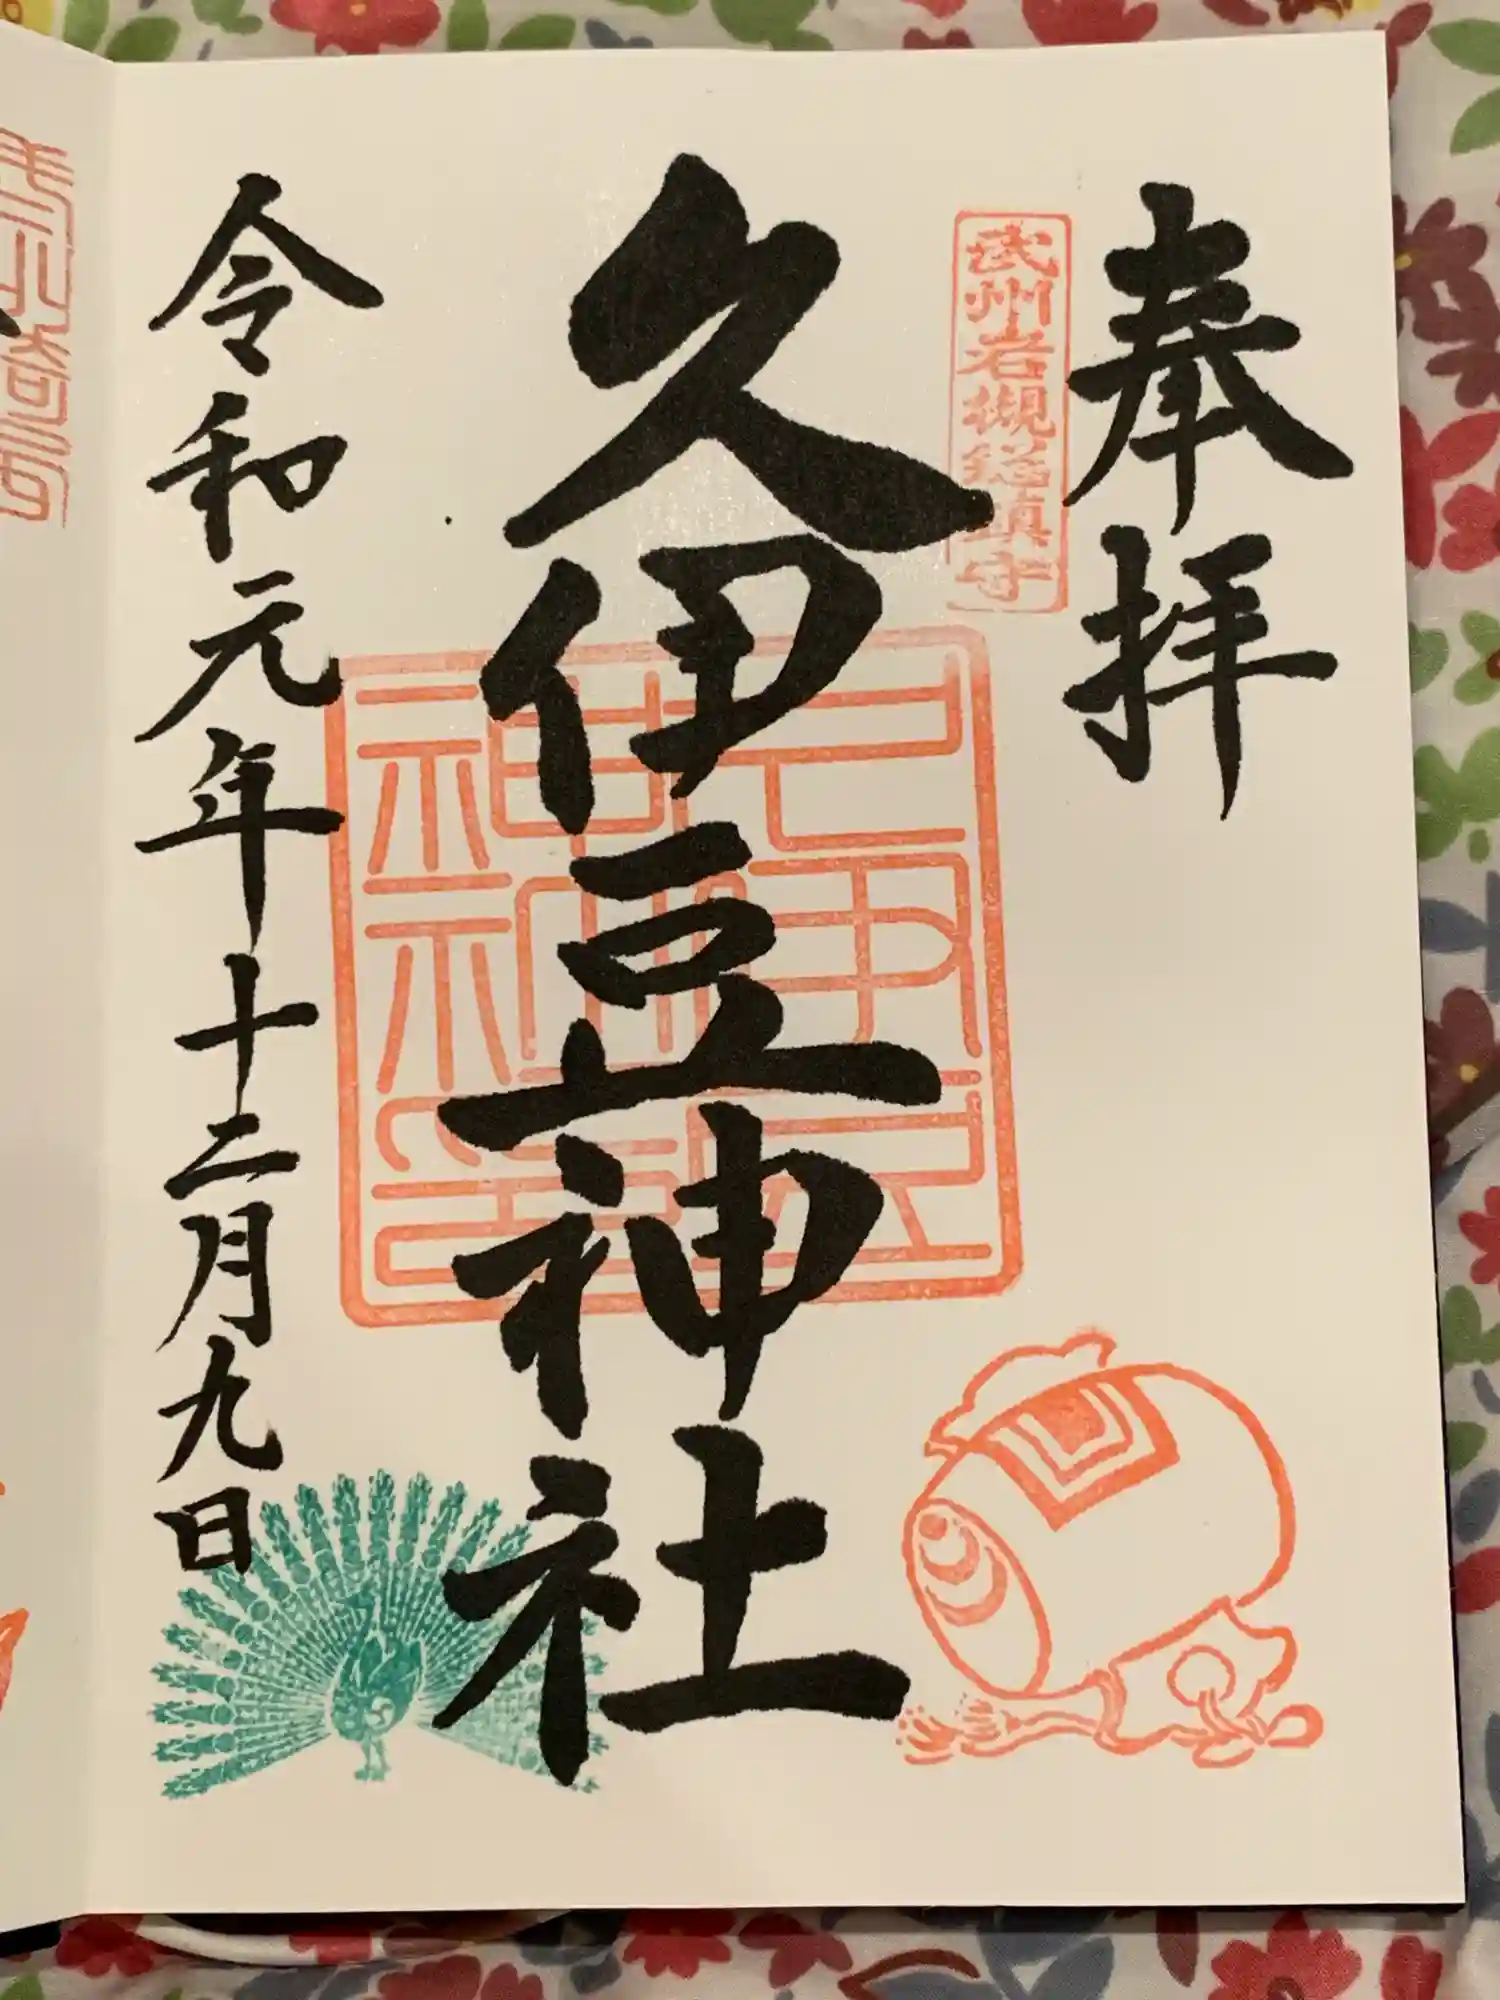 奉拝
武州岩槻総鎮守
久伊豆神社
令和元年十二月九日